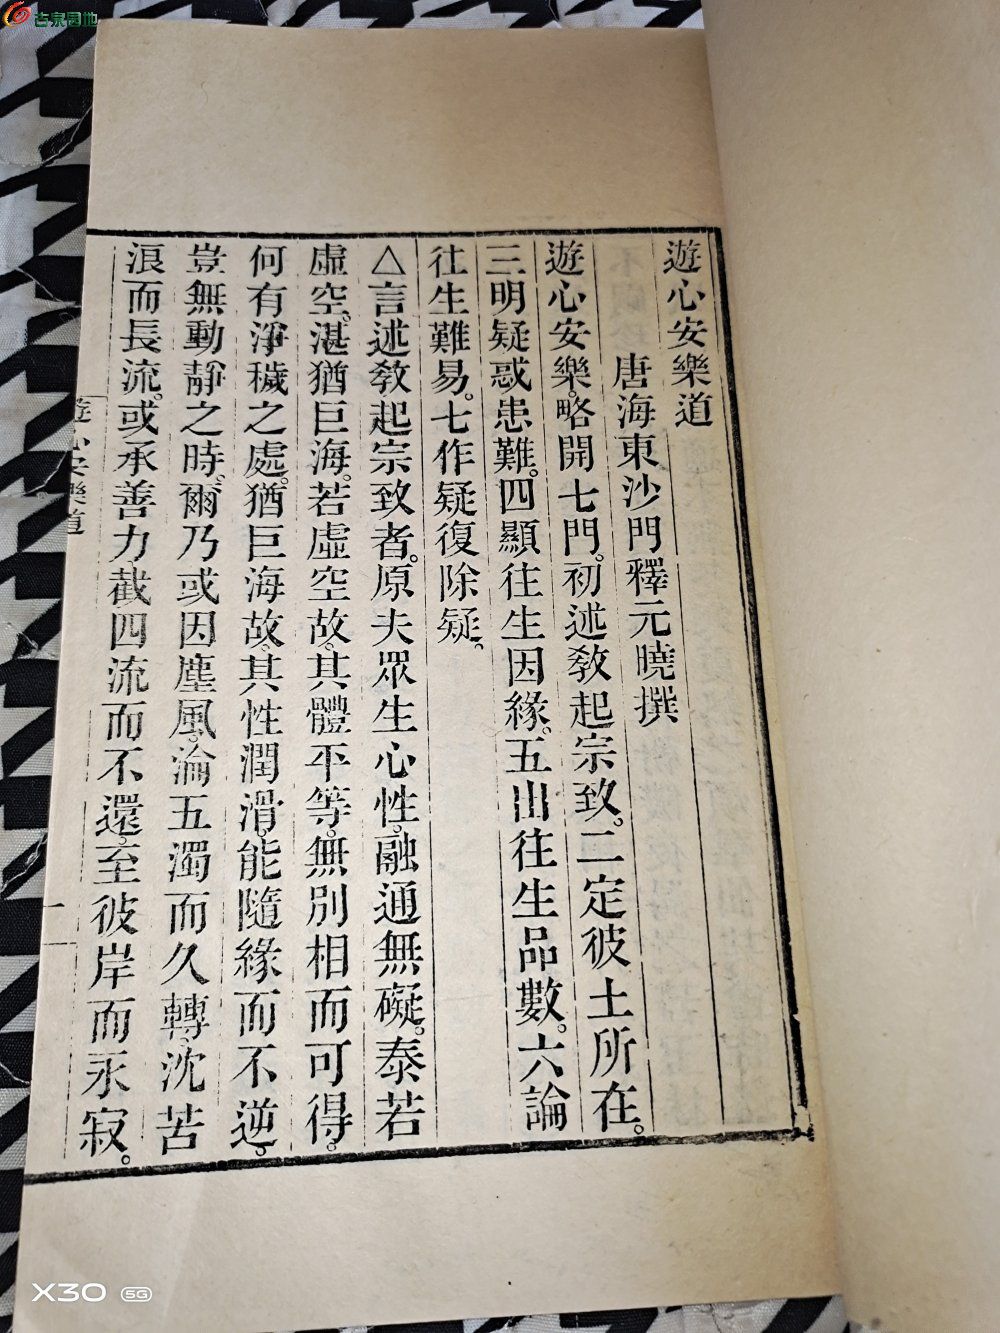 遊心安樂道
唐海東沙門釋元曉撰
遊心安樂。略開七門。初述教起宗致。二定彼土所在。
三明疑惑患難。四顯往生因緣。五出往生品數。六論
往生難易。七作疑復除疑。
△言述教起宗致者。原夫眾生心性。融通無礙。泰若
虛空。湛猶巨海。若虛空故。其體平等。無別相而可得。
何有淨穢之處。猶巨海故。其性潤滑。能隨緣而不逆。
豈無動靜之時。爾乃或因塵風。淪五濁而久轉。沈苦
浪而長流。或承善力。截四流而不還。至彼岸而永寂。
遊心安樂道
一
古泉园地
X30 5G